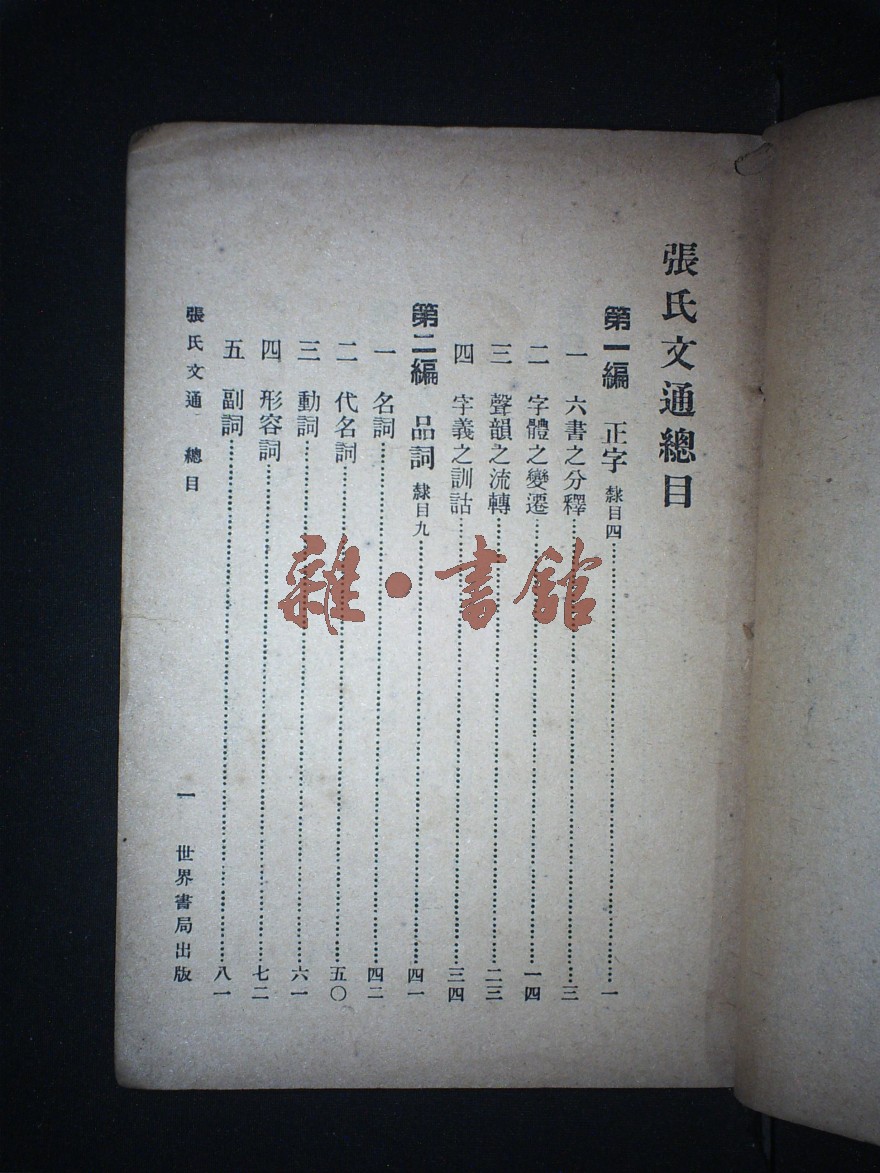 張氏文通總目
第一編 正字 隸目四……一
一 六書之分釋……三
二 字體之變遷……一四
三 聲韻之流轉……二三
四 字義之訓詁……三四
第二編 品詞 隸目九……四一
一 名詞……四二
二 代名詞……五〇
三 動詞……六一
四 形容詞……七二
五 副詞……八一
張氏文通 總目 一 世界書局出版
雜·書館